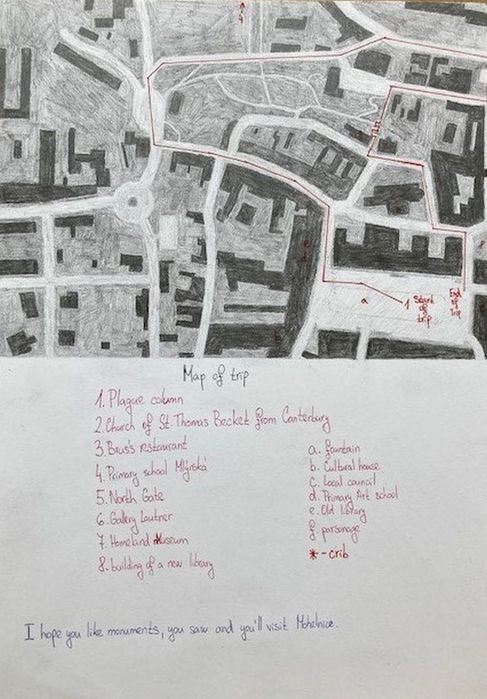 4
1 Start
of
trip
End
of
trip
a
b
d
e
8
Map of trip
1. Plague column
2. Church of St. Thomas Becket from Canterbury
3. Brus's restaurant
4. Primary school Mlýnská
5. North Gate
6. Gallery Lautner
7. Homeland Museum
8. building of a new library
a. fountain
b. Cultural house
c. Local council
d. Primary Art school
e. Old library
f. parsonage
* - crib
I hope you like monuments, you saw and you'll visit Mohelnice.